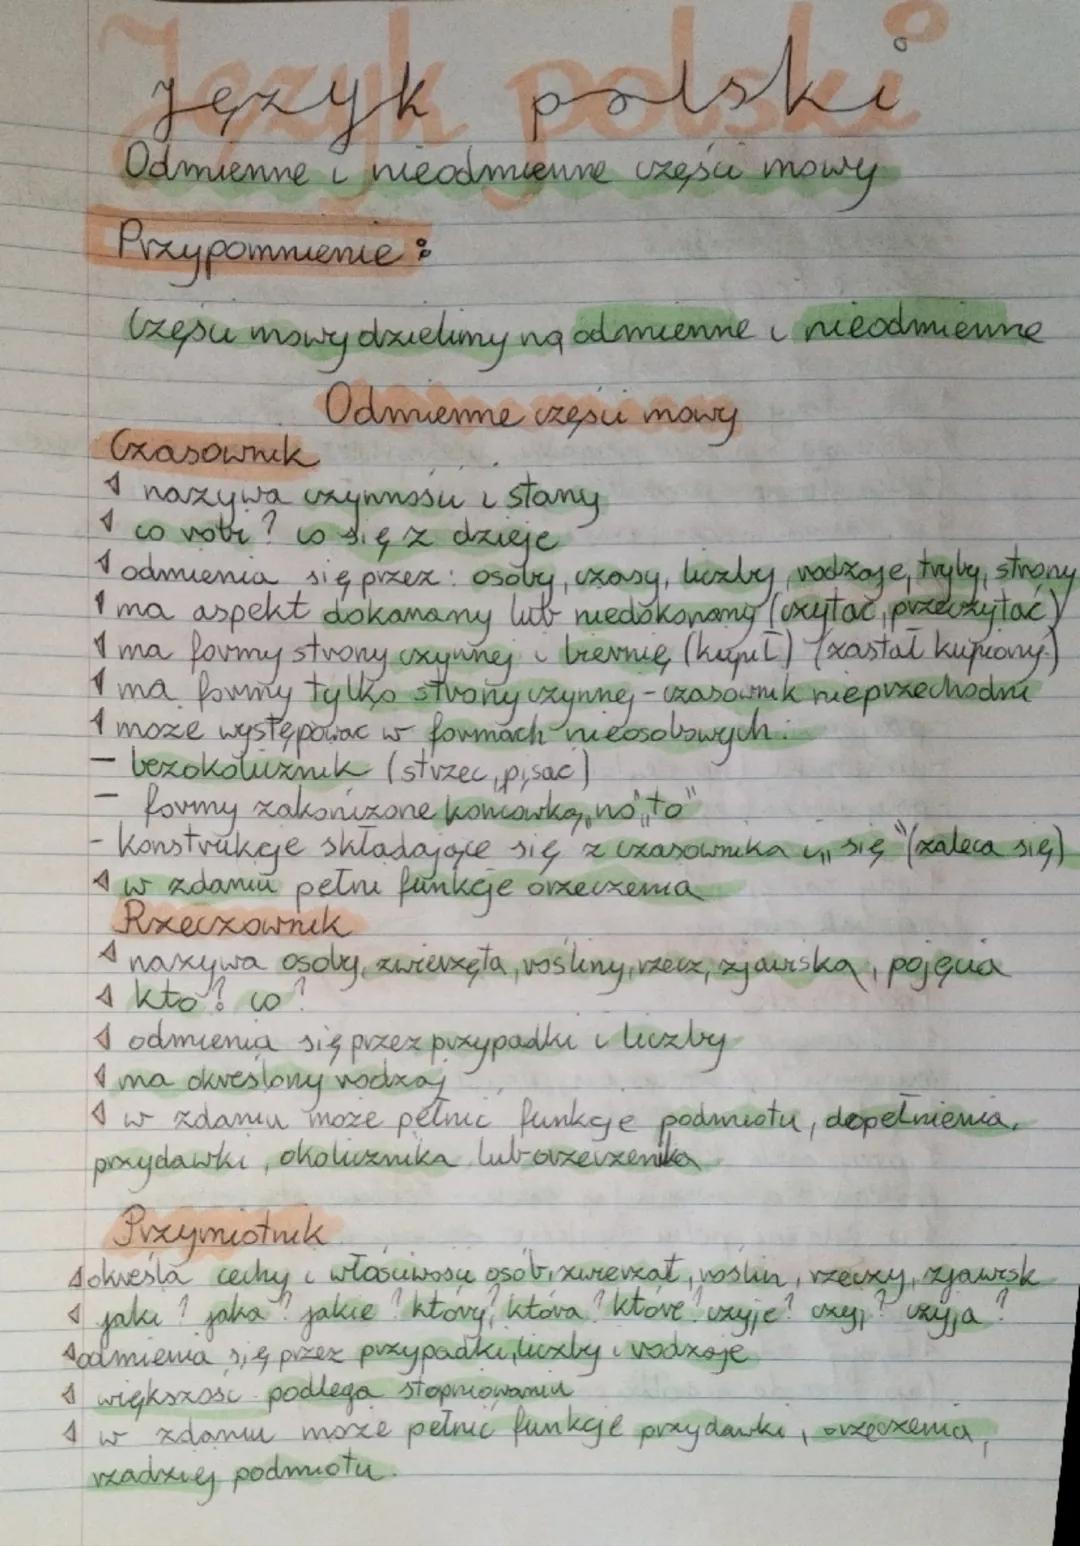 Język polski
Odmienne i nieodmienne części mowy
Przypomnienie:
Części mowy dzielimy na odmienne i nieodmienne
Odmienne części mowy
Czasownik
nazywa czynności i stany
co robi? co się z dzieje
odmienia się przez: osoby, czasy, liczby, rodzaje, tryby, strony
ma aspekt dokanany lub niedokonany (czytać, przeczytać)
ma formy strony czynnej i biernię (kupił) (zastał kupiony)
ma formy tylko strony czynnej - czasownik nieprzechodni
może występować w formach nieosobowych:
- bezokolicznik (strzec, pisać)
- formy zakończone końcówką „no" „to"
- konstrukcje składające się z czasownika i „się" (zaleca się)
w zdaniu pełni funkcje orzeczenia
Rzeczownik
nazywa osoby, zwierzęta, rośliny, rzecz, zjawiska, pojęcia
kto? co?
odmienia się przez przypadki i liczby
ma określony rodzaj
w zdaniu może pełnić funkcje podmiotu, dopełnienia,
przydawki, okolicznika lub orzeczenika
Przymiotnik
określa cechy i właściwości osób, zwierzat, roślin, rzeczy, zjawisk
jaki? jaka? jakie? który? która? które? czyje? czyj? czyja?
odmienia się przez przypadki, liczby i rodzaje
większość podlega stopniowaniu
w zdaniu może pełnić funkcje przydawki, orzeczenia,
rzadziej podmiotu.